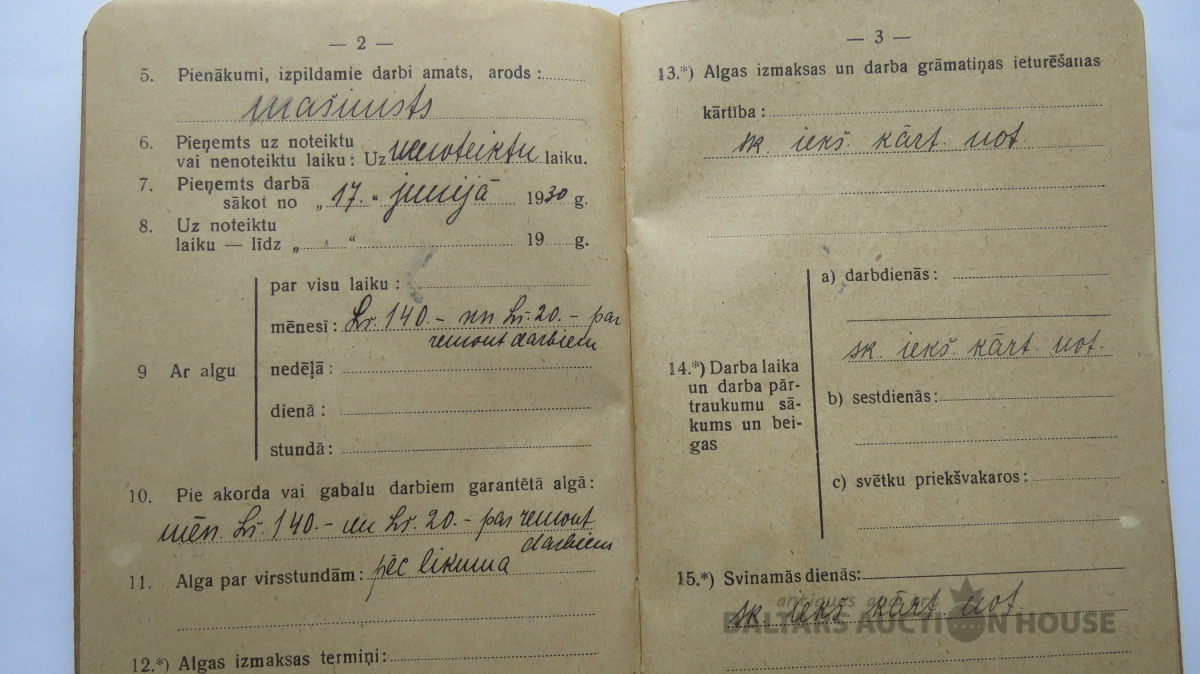 — 2 —
5. Pienākumi, izpildamie darbi amats, arods :
mašinists
6. Pieņemts uz noteiktu
vai nenoteiktu laiku : Uz nenoteiktu laiku.
7. Pieņemts darbā
sākot no „ 17. “ junijā 1930 g.
8. Uz noteiktu
laiku — līdz „ “ 19 g.
par visu laiku :
mēnesī : Ls. 140.- un Ls. 20.- par
remont darbiem
9 Ar algu nedēļā :
dienā :
stundā :
10. Pie akorda vai gabalu darbiem garantētā algā :
mēn. Ls. 140.- un Ls. 20.- par remont
darbiem
11. Alga par virsstundām : pēc likuma
12.*) Algas izmaksas termiņi :
— 3 —
13.*) Algas izmaksas un darba grāmatiņas ieturēšanas
kārtība :
sk. iekš. kārt. not.
a) darbdienās :
sk. iekš. kārt. not.
14.*) Darba laika
un darba pār-
traukumu sā-
kums un bei-
gas
b) sestdienās :
c) svētku priekšvakaros :
15.*) Svinamās dienās:
sk. iekš. kārt. not.
antiques and art
BALTARS AUCTION HOUSE